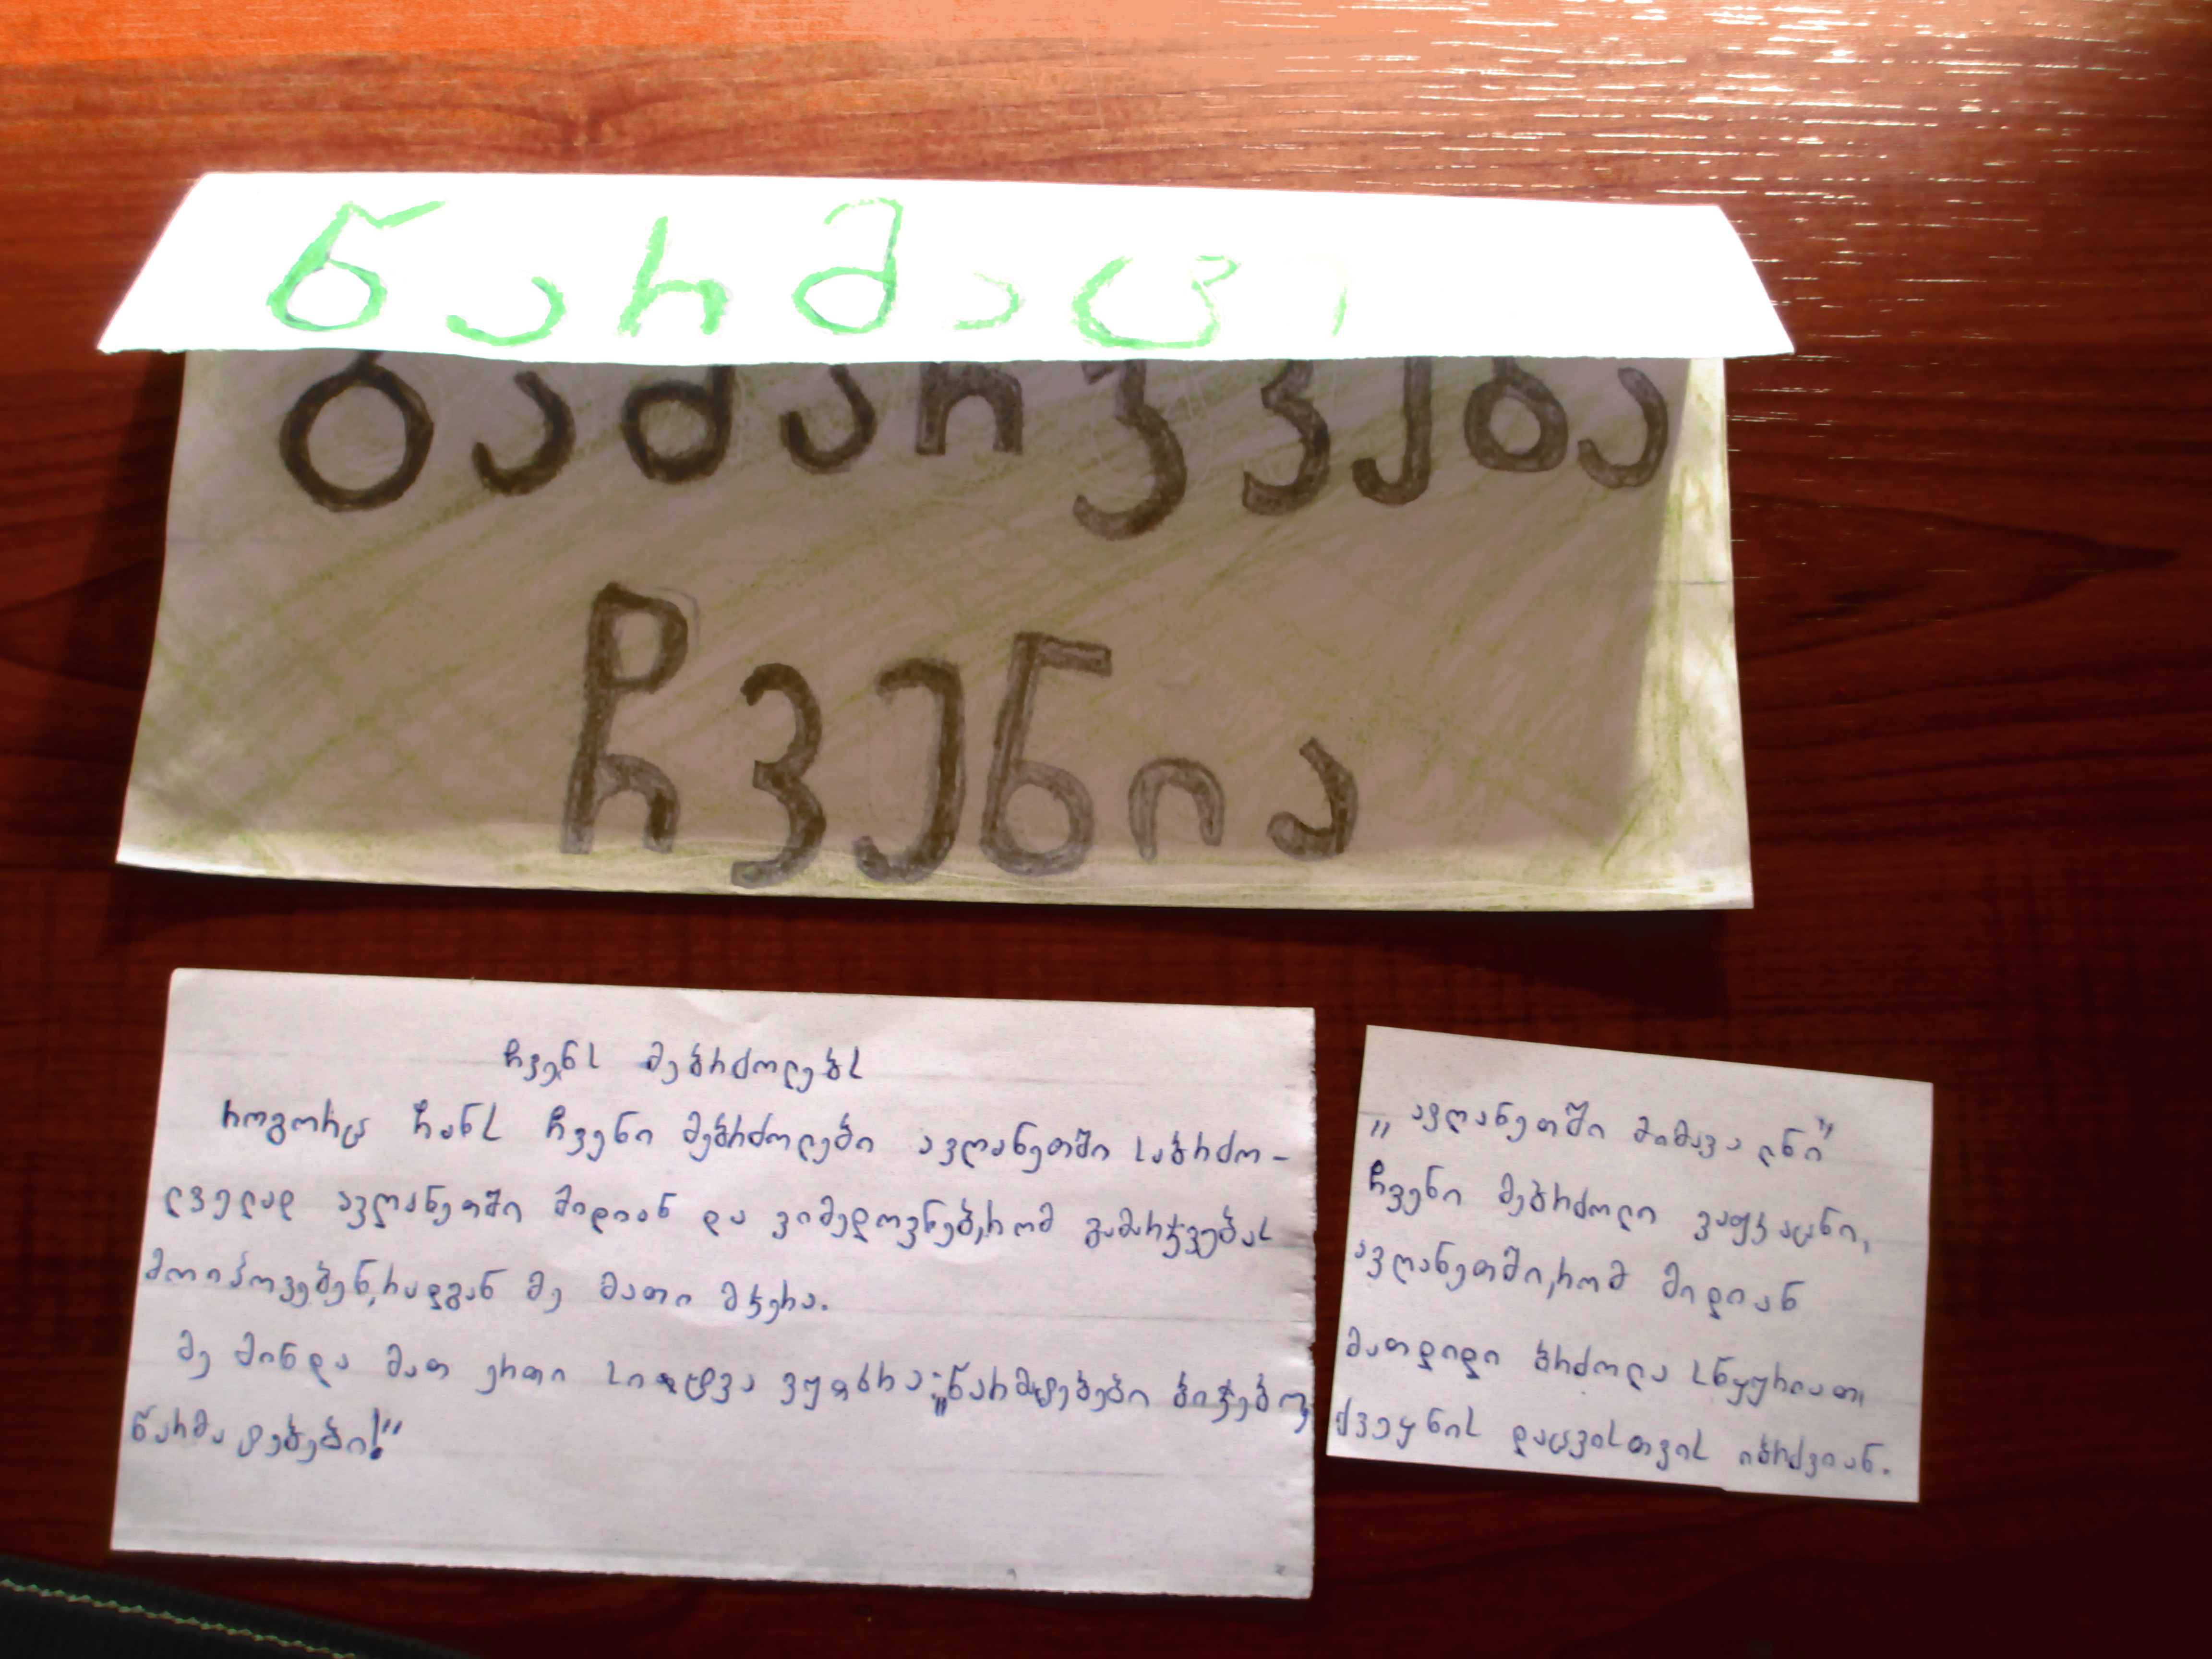 გამარჯვება
ჩვენია
ჩვენს მებრძოლებს
როგორც ჩანს ჩვენი მებრძოლები ავღანეთში საბრძო-
ლველად ავღანეთში მიდიან და ვიმედოვნებ,რომ გამარჯვებას
მოიპოვებენ,რადგან მე მათი მჯერა.
მე მინდა მათ ერთი სიტყვა ვუთხრა:„წარმატებები ბიჭებო,
წარმატებები!"
„ავღანეთში მიმავალნი"
ჩვენი მებრძოლი ვაჟკაცნი,
ავღანეთში,რომ მიდიან
მათ დიდი ბრძოლა სწყურიათ,
ქვეყნის დაცვისთვის იბრძვიან.